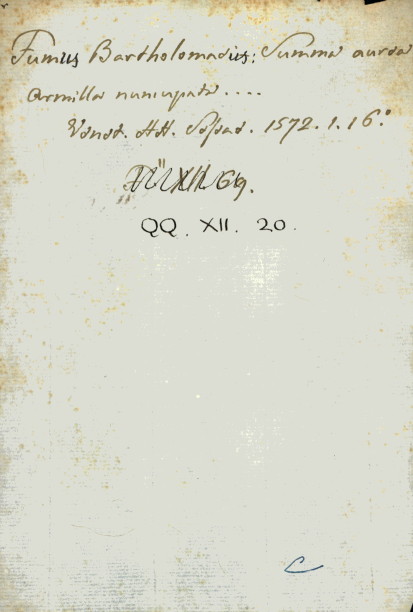 Fumus Bartholomaeus: Summa aurea
armilla nuncupata ....
Venet. 1572. 1. 16.°
69.
QQ. XII. 20.
C